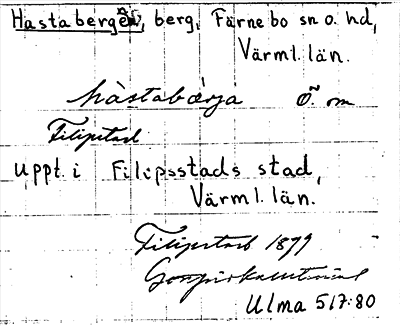 Hastaberget, berg, Färnebo sn o. hd,
Värml. län.
hàstabærja Ö. om
Filipstad
uppt. i Filipsstads stad,
Värml. län.
Filipstad 1899
Ulma 517:80